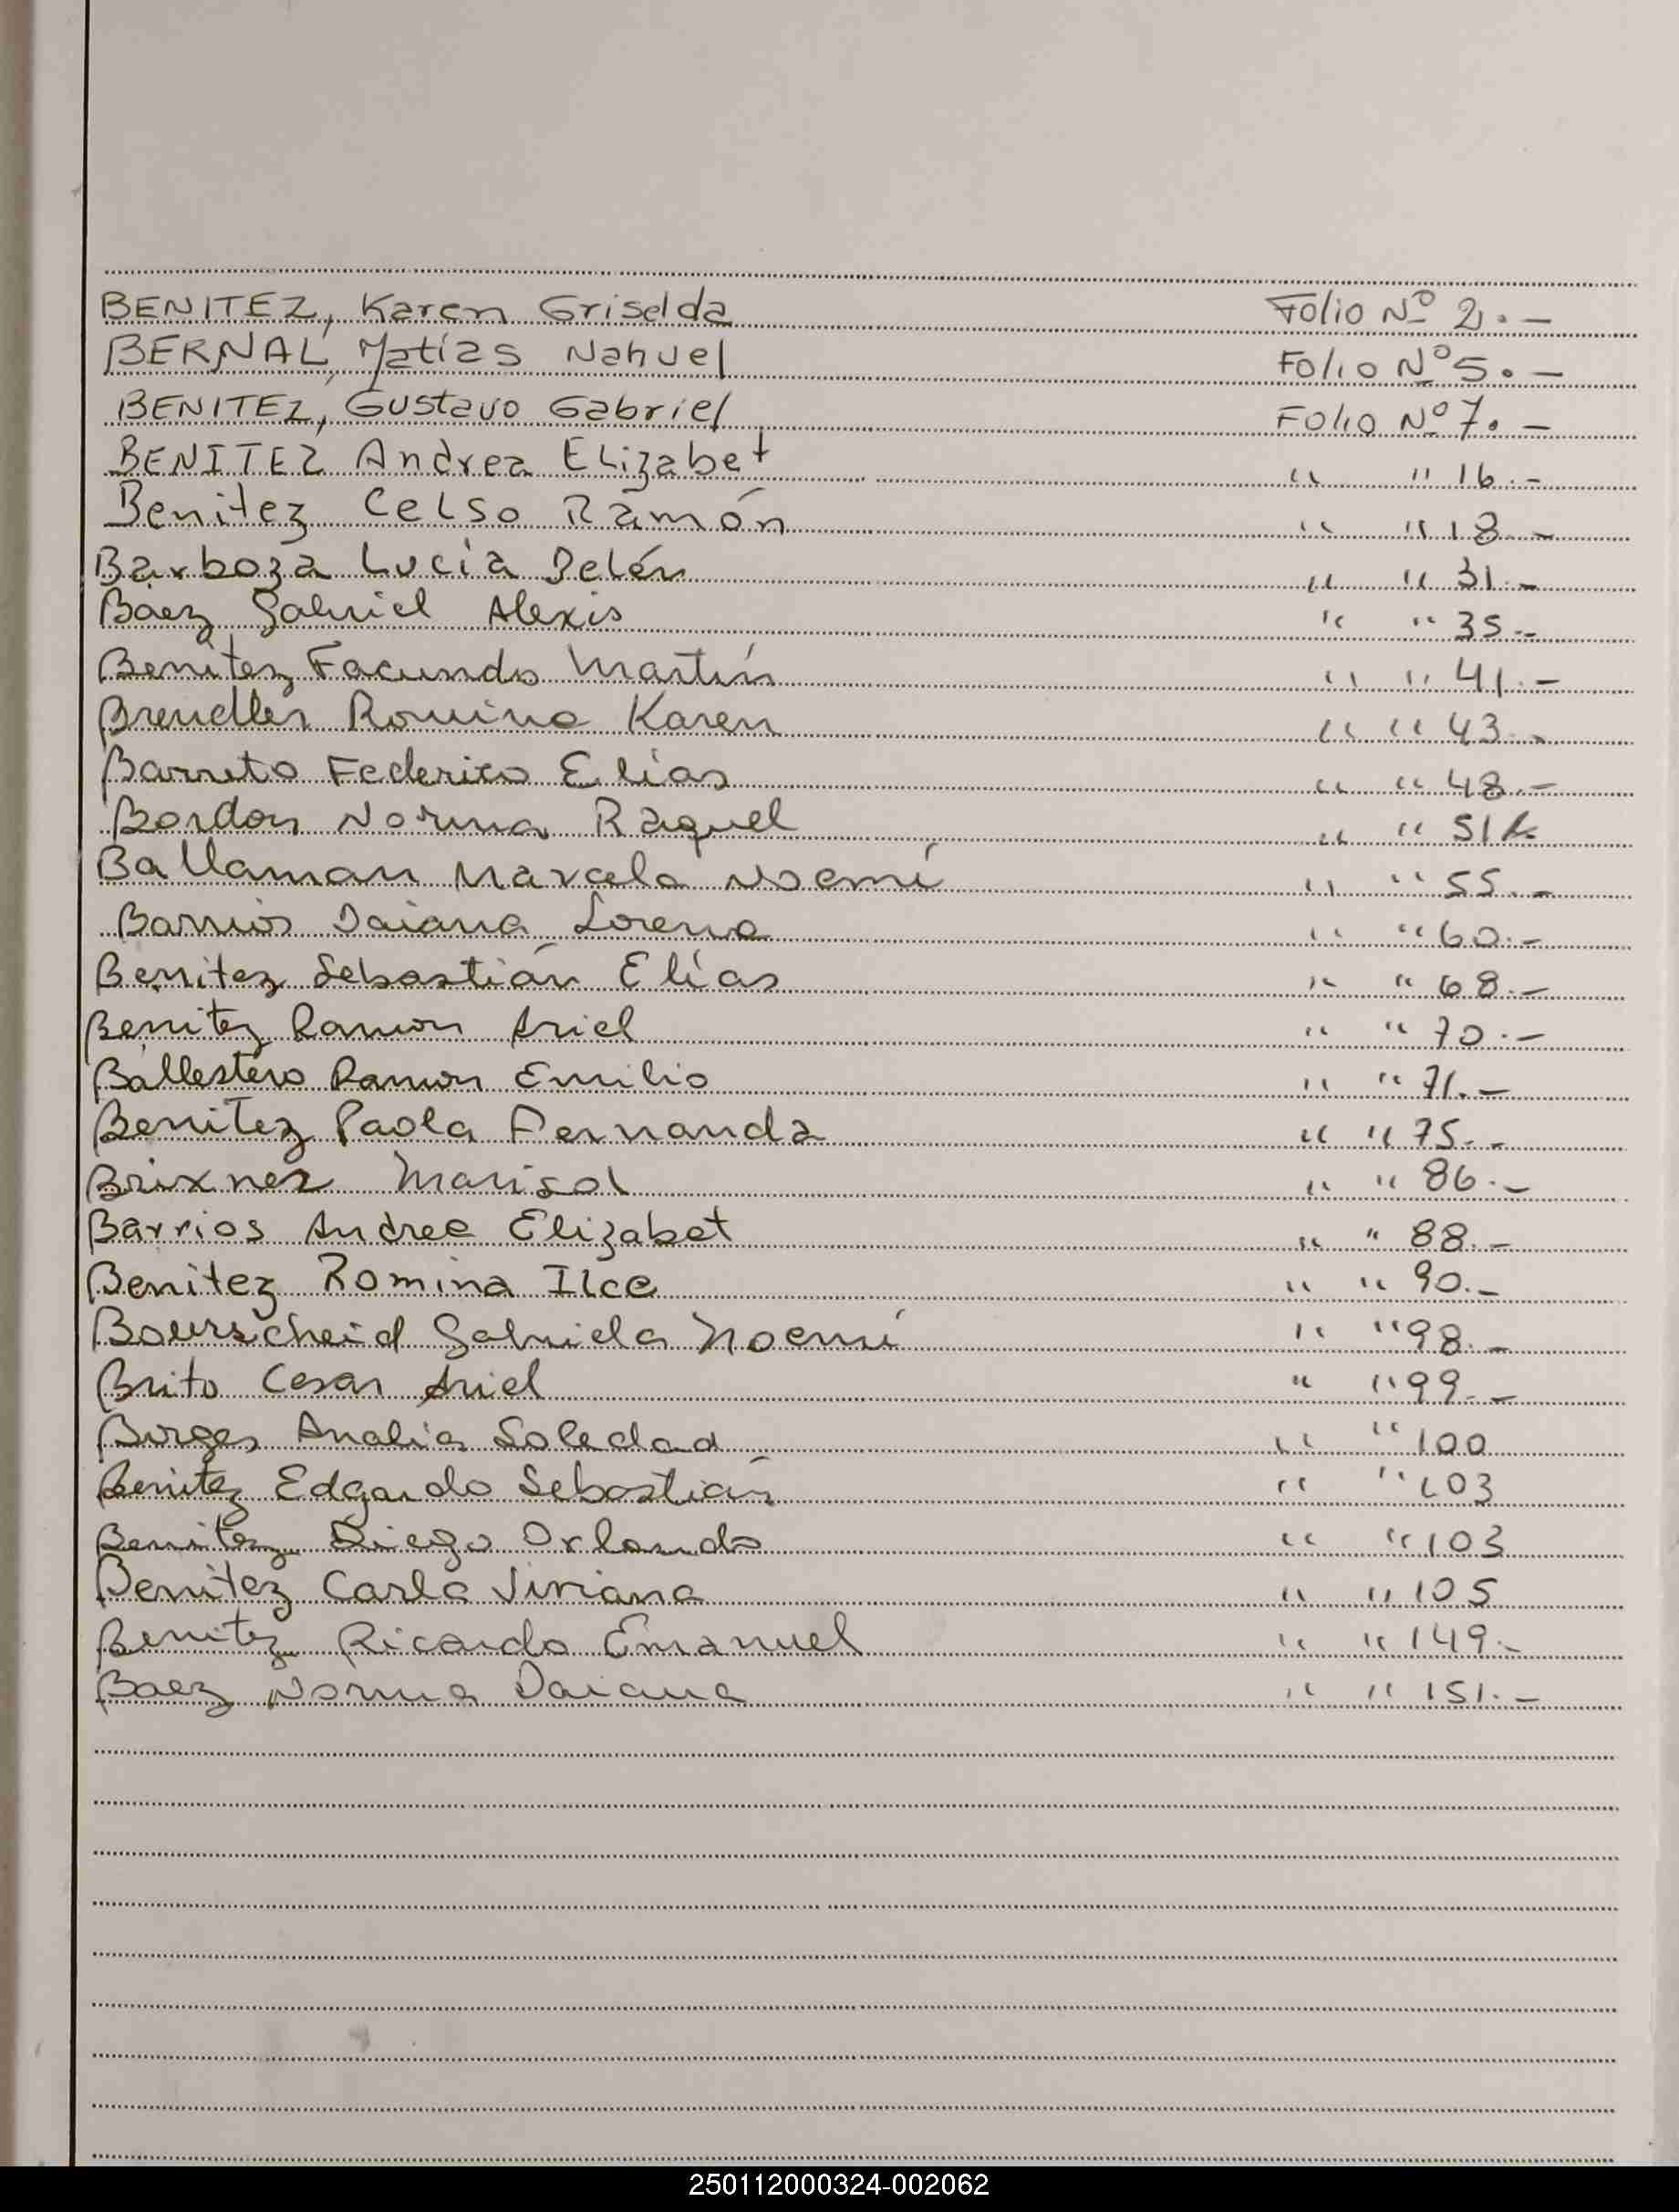 BENITEZ, Karen Griselda Folio Nº 2.-
BERNAL, Matías Nahuel Folio Nº 5.-
BENITEZ, Gustavo Gabriel Folio Nº 7.-
BENITEZ Andrea Elizabet " " 16.-
Benitez Celso Ramón " " 18.-
Barboza Lucía Belén " " 31.-
Báez Gabriel Alexis " " 35.-
Benitez Facundo Martín " " 41.-
Brendler Romina Karen " " 43.-
Barreto Federico Elías " " 48.-
Bordon Norma Raquel " " 51
Ballaman Marcela Noemí " " 55.-
Barrios Daiana Lorena " " 60.-
Benitez Sebastián Elías " " 68.-
Benitez Ramon Ariel " " 70.-
Ballestero Ramon Emilio " " 71.-
Benitez Paola Fernanda " " 75.-
Brixner Marisol " " 86.-
Barrios Andrea Elizabet " " 88.-
Benitez Romina Ilce " " 90.-
Bourscheid Gabriela Noemí " " 98.-
Brito Cesar Ariel " " 99.-
Borges Analia Soledad " " 100
Benitez Edgardo Sebastián " " 103
Benitez Diego Orlando " " 103
Benitez Carla Viviana " " 105
Benitez Ricardo Emanuel " " 149.-
Baez Norma Daiana " " 151.-
250112000324-002062